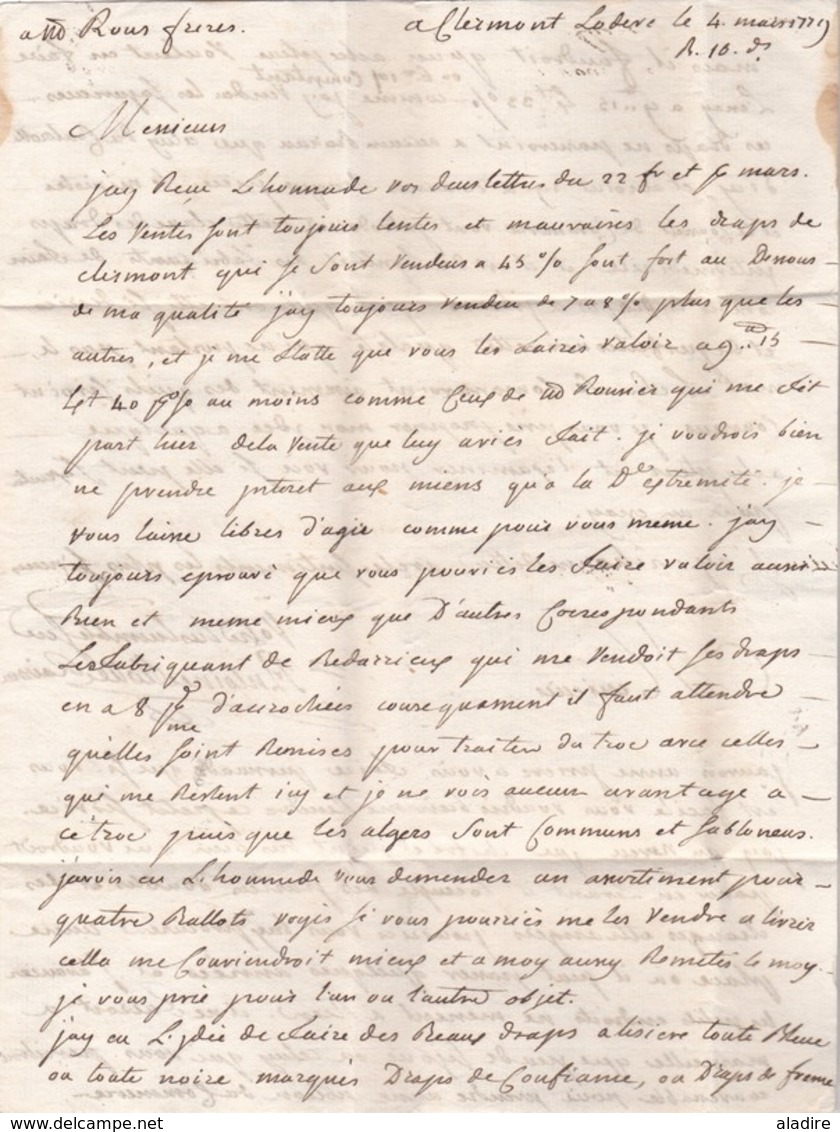 a MM Roux freres. a Clermont Lodeve le 4. mars 1779
R. 10. ds
Messieurs
jay Reçu L'honneur de vos deux lettres du 22 fr et pr mars.
Les Ventes sont toujours lentes et mauvaises les draps de
clermont qui se sont vendeus a 45 % sont fort au Desous
de ma qualité jay toujours vendeu de 7 a 8 % plus que les
autres, et je me flatte que vous les fairés valoir a 9.. 15
et 40 p% au moins comme Ceux de Mr Rousier qui me fit
part hier de la Vente que luy aviés fait. je voudrois bien
ne prendre jnteret aux miens qu'a la Dre extremité. je
vous laisse libres d'agir comme pour vous meme. jay
toujours eprouvé que vous pouviés les faire valoir aussi
Bien et meme mieux que D'autres Correspondants
Les fabriquant de Bedarrieux qui me vendoit ses draps
en a 8 d'accrochées consequament il faut attendre
qu'elles soint Remises pour traiter du troc avec celles
qui me Restent icy et je ne vois aucun avantage a
ce troc puis que les algers sont Communs et sabloneux.
j'avois eu L'honneur de vous demender un assortiment pour
quatre Ballots voyés si vous pourriés me les vendre a livrer
cella me Conviendroit mieux et a moy aussy Remetés le moy
je vous prie pour l'un ou l'autre objet.
jay eu L'jdée de faire des Beaux draps a lisiere toute Bleue
ou toute noire marqués Draps de Confiance, ou Draps de france
aladire